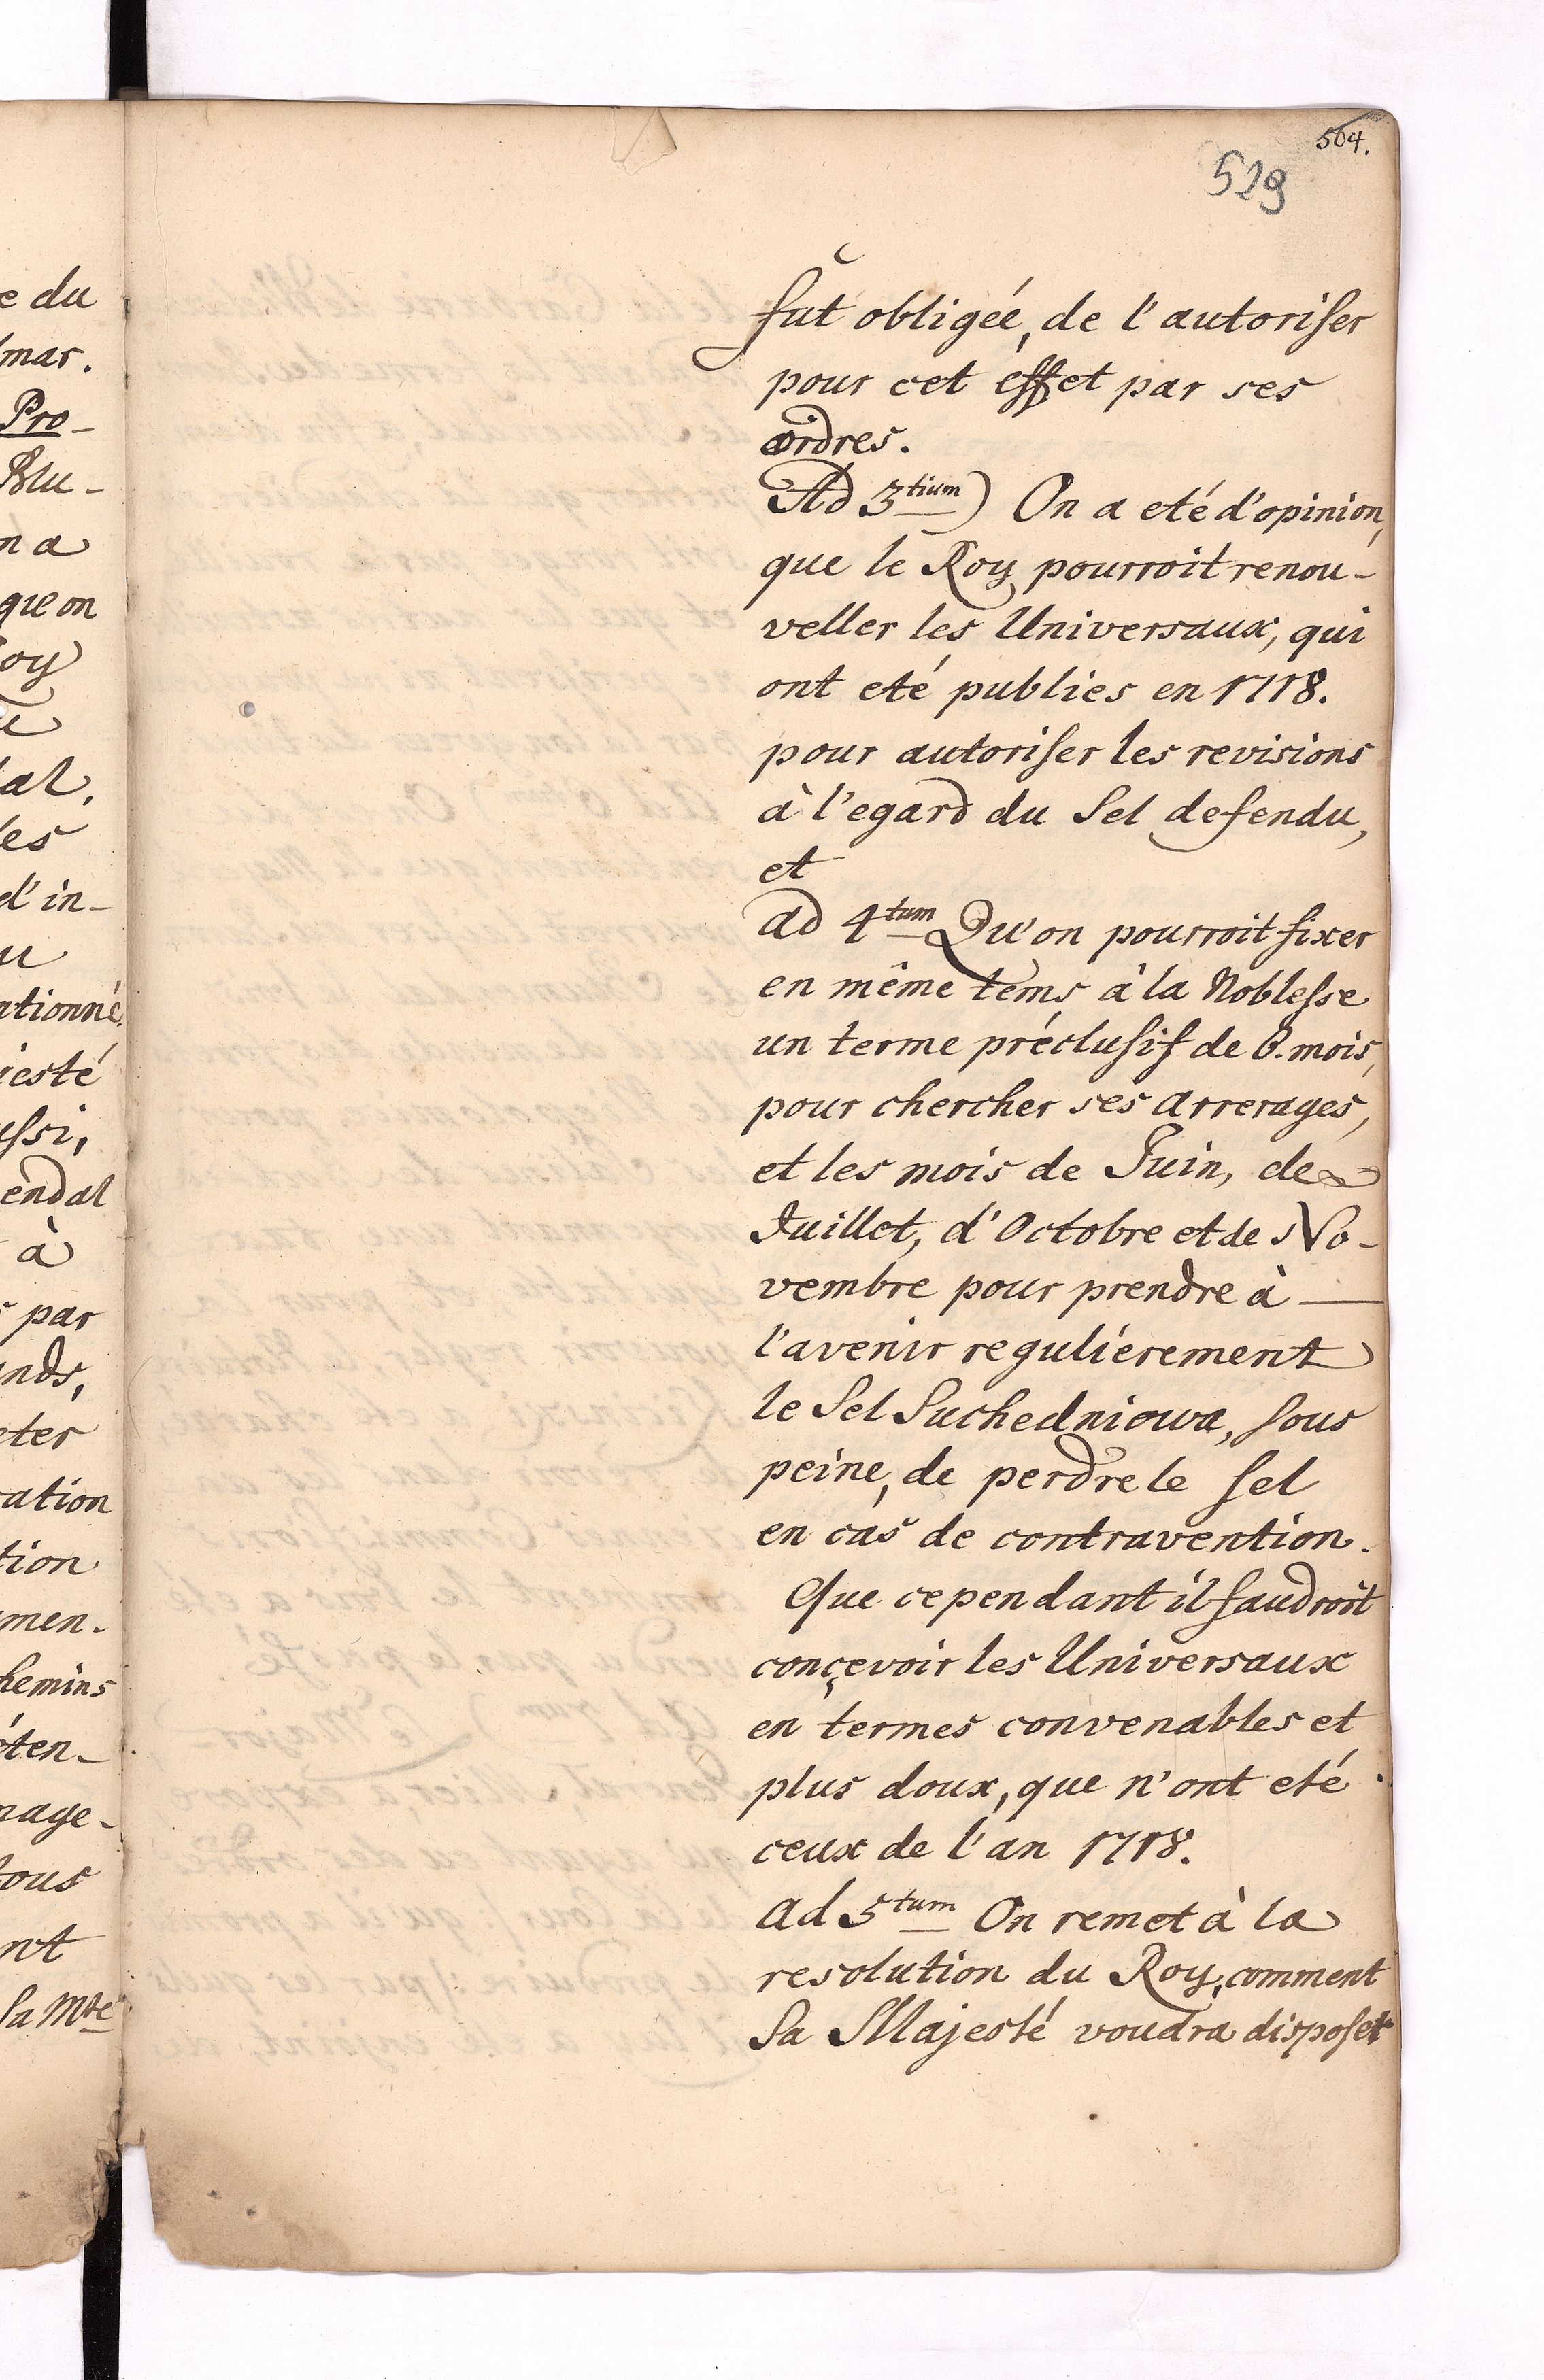 564.
529
fut obligée, de l'autoriser
pour cet effet par ses
ordres.
Ad 3tium) On a eté d'opinion,
que le Roy pourroit renou-
veller les Universaux, qui
ont eté publies en 1718.
pour autoriser les revisions
à l'egard du Sel defendu,
et
ad 4tum Qu'on pourroit fixer
en même tems à la Noblesse
un terme préclusif de 6. mois,
pour chercher ses arrerages,
et les mois de Juin, de
Juillet, d'Octobre et de No-
vembre pour prendre à
l'avenir reguliérement
le Sel Suchedniowa, sous
peine, de perdre le sel
en cas de contravention.
Que cependant il faudroit
conçevoir les Universaux
en termes convenables et
plus doux, que n'ont eté
ceux de l'an 1718.
ad 5tum On remet à la
resolution du Roy, comment
Sa Majesté voudra disposer
e du
mar.
Pro-
Blu-
n a
que on
oy
al,
les
d'in-
u
ationné
jesté
ussi,
endal
à
par
nds,
eter
ration
tion
men-
hemins
éten-
nage-
ous
nt
Sa Mté